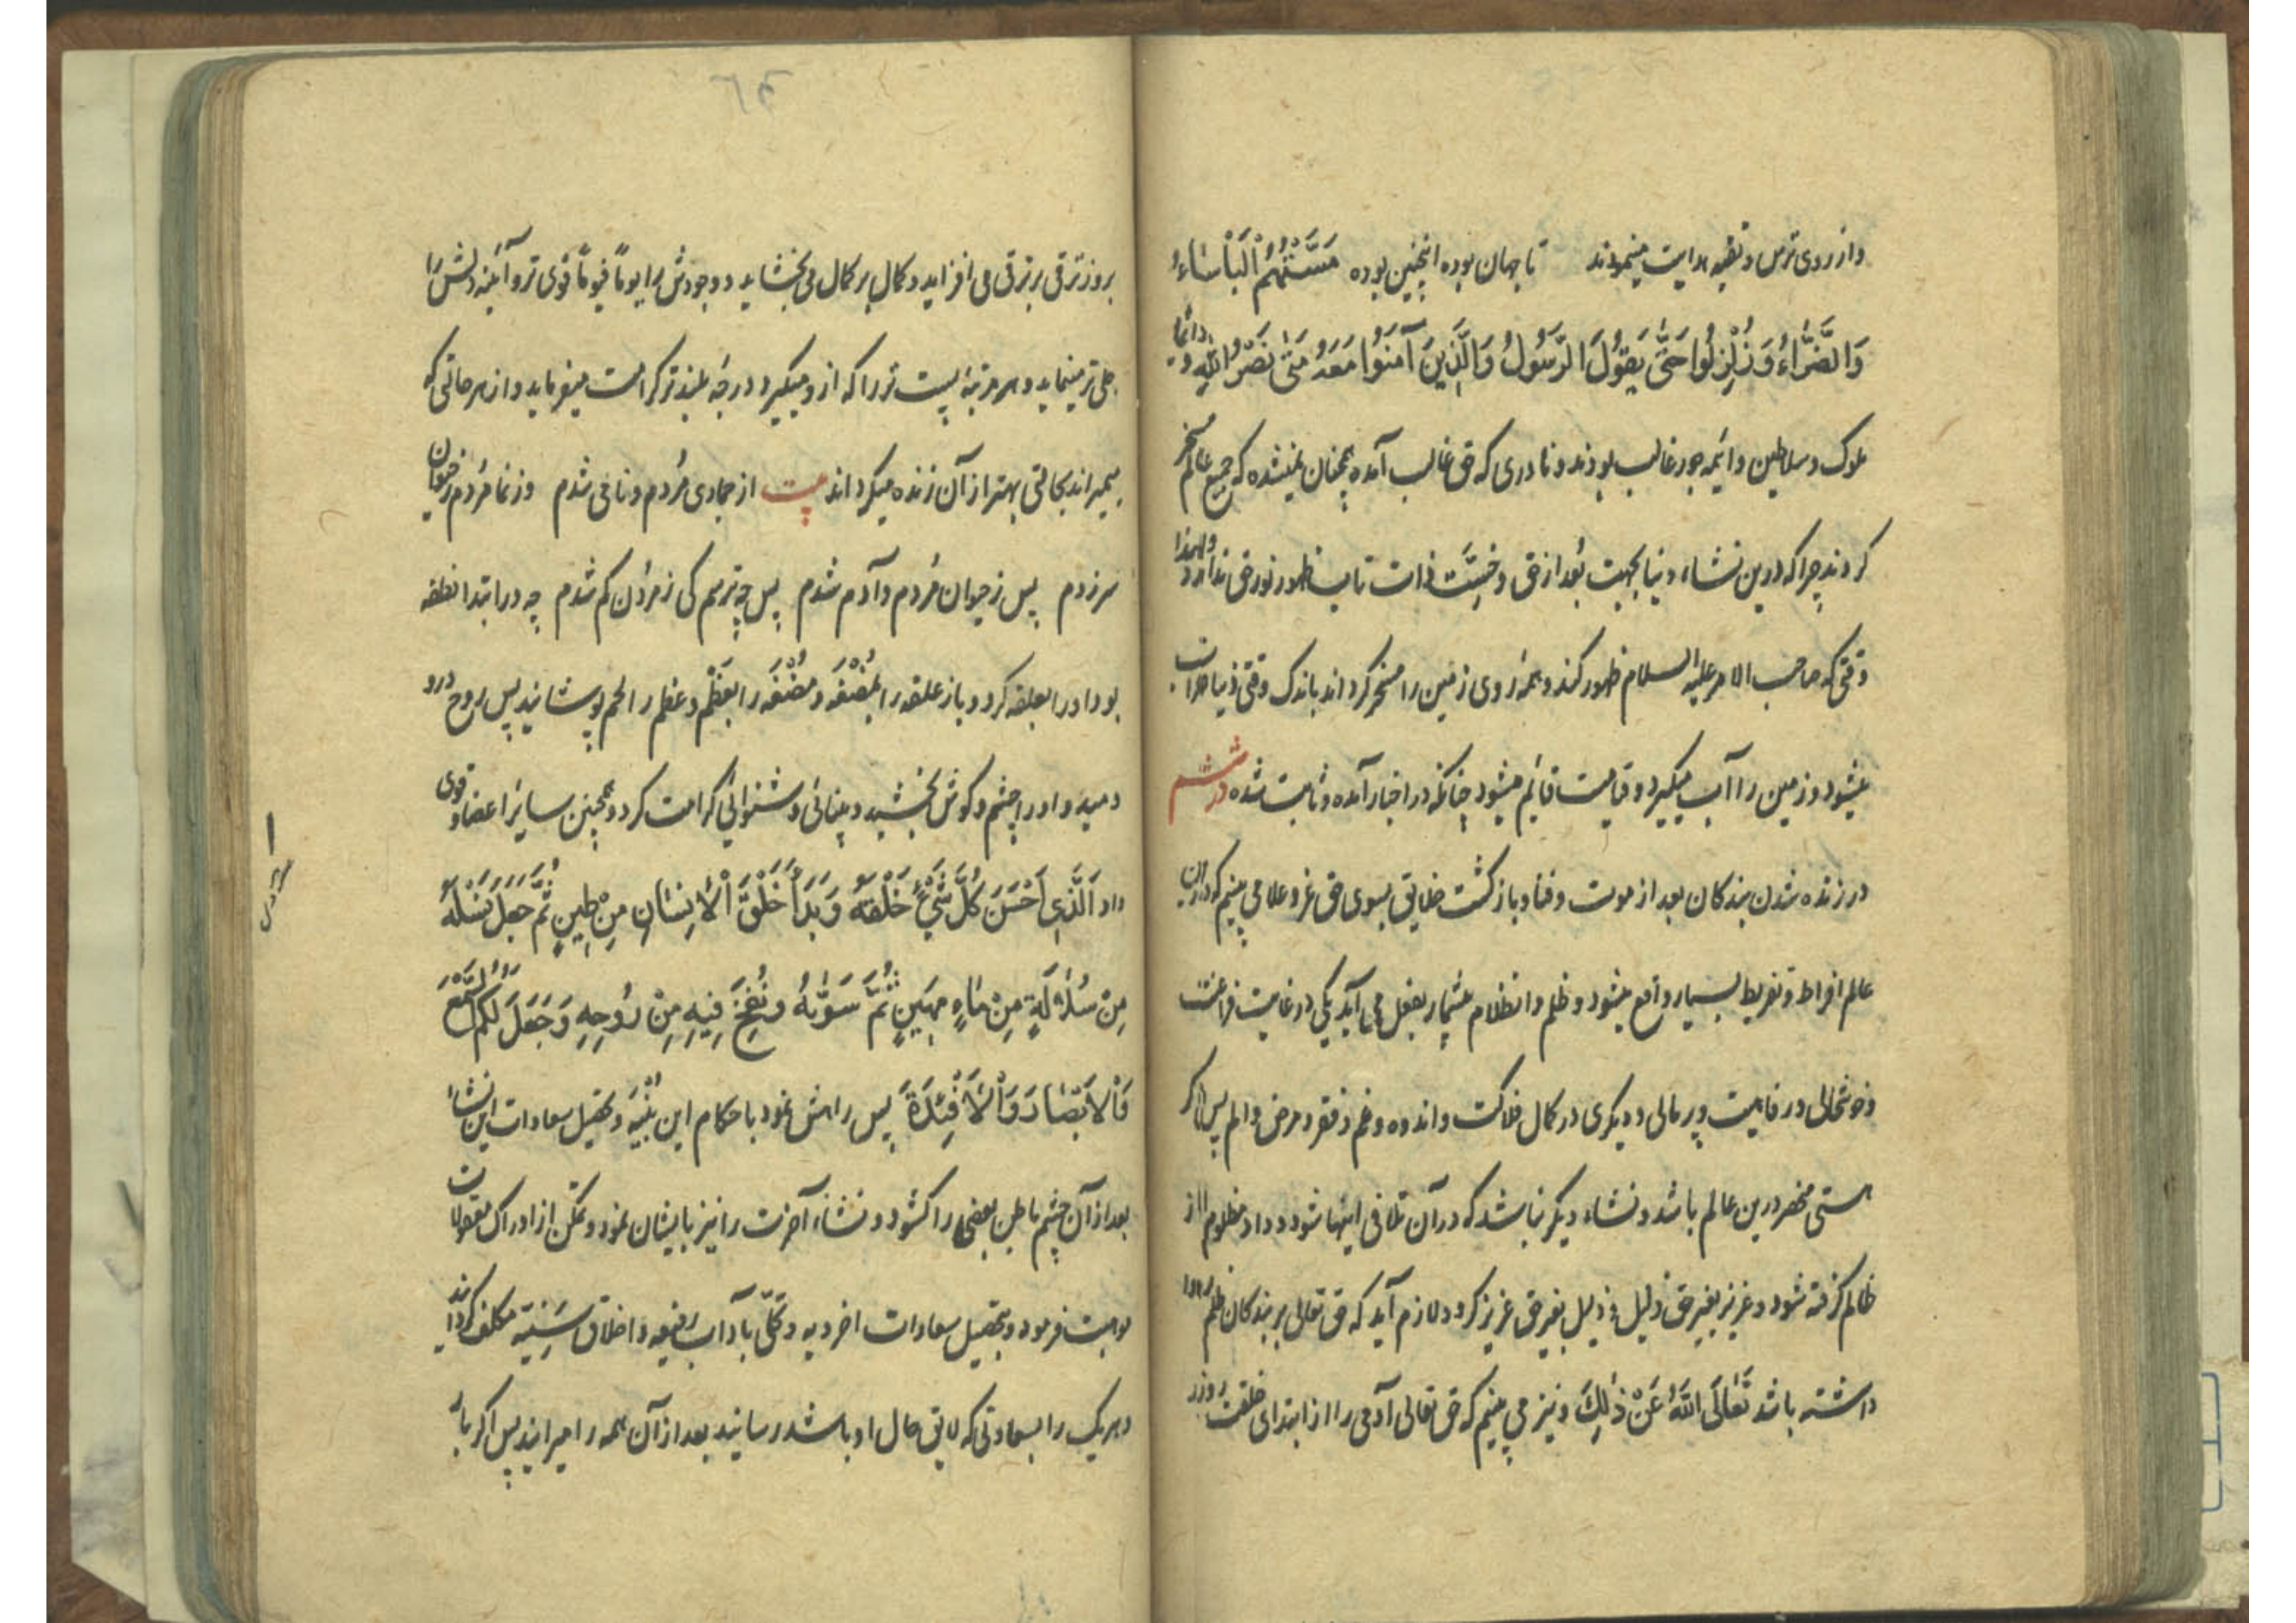 و از روی ترس و تقیه هدایت مینمودند تا جهان بوده اینچنین بوده مَسَّتْهُمُ الْبَأْسَاءُ
وَالضَّرَّاءُ وَزُلْزِلُوا حَتَّى يَقُولَ الرَّسُولُ وَالَّذِينَ آمَنُوا مَعَهُ مَتَى نَصْرُ اللَّهِ و دائما
ملوک و سلاطین و ائمه جور غالب بودند و نادری که حق غالب آمده همچنان نمیشده که جمیع عالم مسخر
کردند چرا که درین نشاء دنیا بجهت بُعد از حق و خِسَّت ذات تاب ظهور نور حق ندارد و لهذا
وقتی که صاحب الامر علیه السلام ظهور کند و همه روی زمین را مسخر کرداند باندک وقتی دنیا خراب
میشود و زمین را آب میگیرد و قیامت قائم میشود چنانکه در اخبار آمده و ثابت شده در ششم
در زنده شدن بندکان بعد از موت و فنا و بازکشت خلایق بسوی حق عز و علا می بینیم که درین
عالم افراط و تفریط بسیار واقع میشود و ظلم و انظلام بیشمار بفعل می آید یکی در غایت فراغت
و خوشحالی در رفاهیت و پر مالی و دیکری در کمال فلاکت و اندوه و غم و فقر و مرض و الم پس اکر
هستی منحصر درین عالم باشد و نشاء دیکر نباشد که در آن تلافی اینها شود و داد مظلوم از
ظالم کرفته شود و عزیز بغیر حق ذلیل و ذلیل بغیر حق عزیز کردد لازم آید که حق تعالی بر بندکان ظلم روا
داشته باشد تَعَالَى اللَّهُ عَنْ ذَلِكَ و نیز می بینیم که حق تعالی آدمی را از ابتدای خلقت روز
۶۴
بروز ترقی بر ترقی می افزاید و کمال بر کمال می بخشاید و وجودش را یوماً فیوماً قوی تر و آئینه دلش را
جلی تر مینماید و هر مرتبهٔ پست تر را که ازو میگیرد درجهٔ بلندتر کرامت میفرماید و از هر حالتی که
میمیراند بحالتی بهتر از آن زنده میکرداند بیت از جمادی مُردم و نامی شدم وز نما مُردم ز حیوان
سر زدم پس ز حیوان مُردم و آدم شدم پس چه ترسم کی ز مردن کم شدم چه در ابتدا نطفه
بود او را بعلقه کرد و باز علقه را بمُضْغَه و مُضْغَه را بعَظْم و عظم را لحم پوشانید پس روح درو
دمید و او را چشم و کوش بخشید و بینائی و شنوائی کرامت کرد و همچنین سایر اعضا و قوی
داد الَّذِي أَحْسَنَ كُلَّ شَيْءٍ خَلْقَهُ وَبَدَأَ خَلْقَ الْإِنْسَانِ مِنْ طِينٍ ثُمَّ جَعَلَ نَسْلَهُ
مِنْ سُلَالَةٍ مِنْ مَاءٍ مَهِينٍ ثُمَّ سَوَّاهُ وَنَفَخَ فِيهِ مِنْ رُوحِهِ وَجَعَلَ لَكُمُ السَّمْعَ
وَالْأَبْصَارَ وَالْأَفْئِدَةَ پس راهش نمود باحکام این بُنیَه و تحصیل سعادات این نشاء
بعد از آن چشم باطن بعضی را کشود و نشاء آخرت را نیز بایشان نمود و تمکن از ادراک معقولات
موهبت فرمود و بتحصیل سعادات اخرویه و تحلّی بآداب رفیعه و اخلاق سَنِیّه مکلف کردانید
و هر یک را بسعادتی که لایق حال او باشد رسانید بعد از آن همه را میراند پس اکر بار